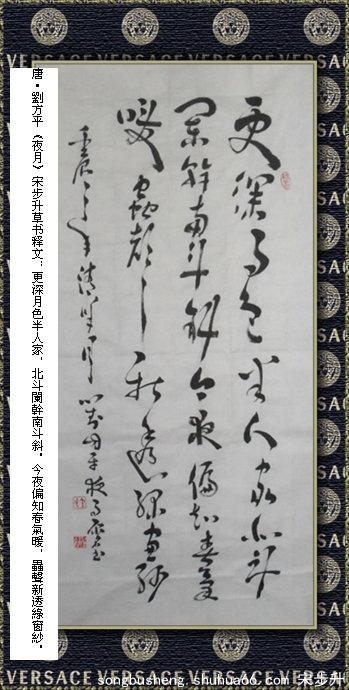 VERSACE VERSACE VERSACE
更深月色半人家北斗
闌幹南斗斜今夜偏知春氣
暖蟲聲新透綠窗紗
壬辰之年 方平夜月 書
唐·劉方平《夜月》宋步升草书释文：更深月色半人家，北斗闌幹南斗斜。今夜偏知春氣暖，蟲聲新透綠窗紗。
songbusheng.shuhua00.com 宋步升